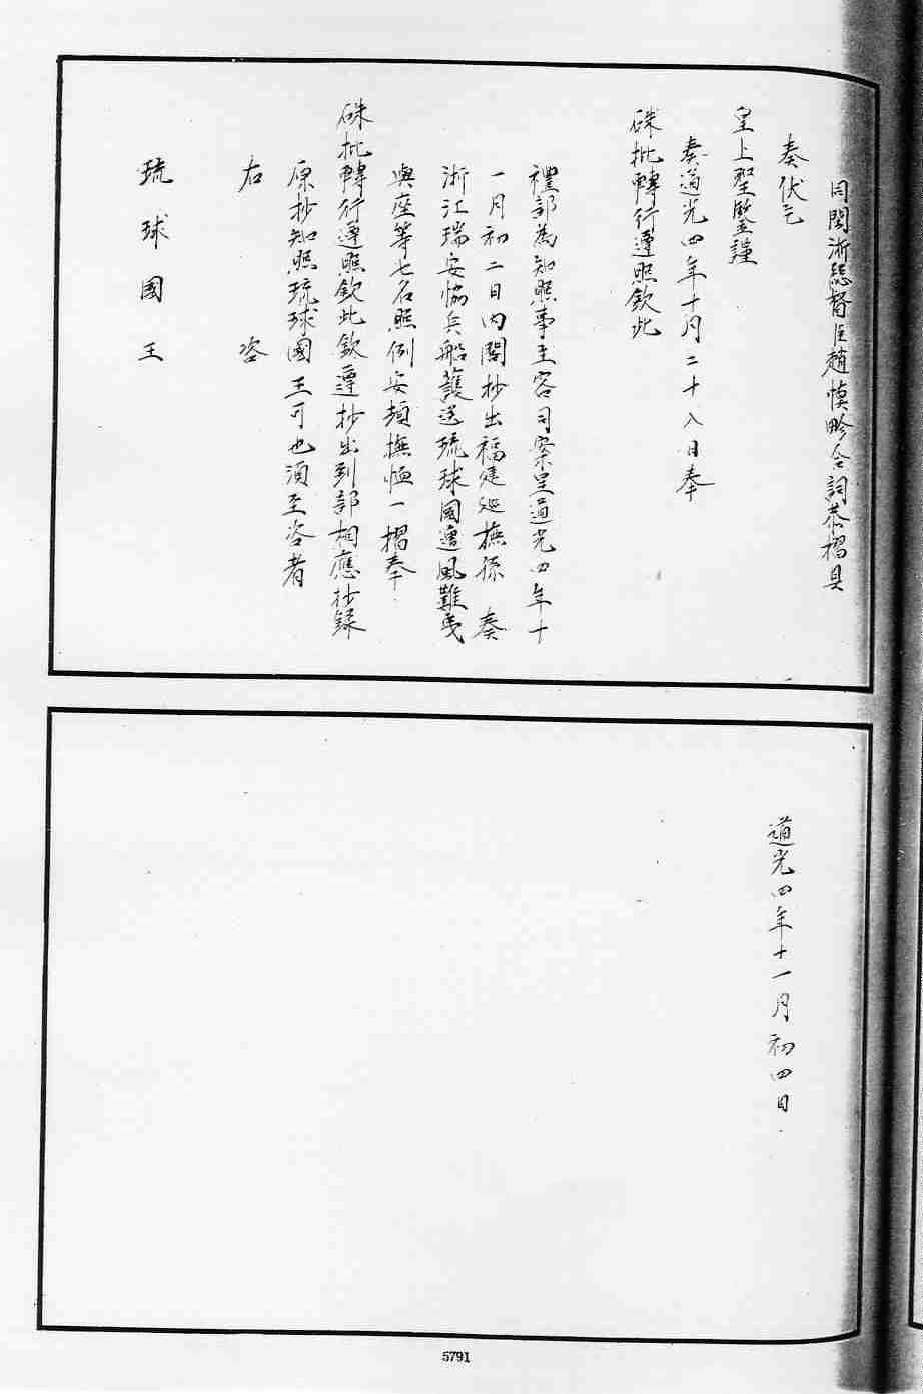 同閩浙總督臣趙慎畛合詞恭摺具
奏伏乞
皇上聖鑒謹
奏道光四年十月二十八日奉
硃批轉行遵照欽此
禮部為知照事主客司案呈道光四年十
一月初二日内閣抄出福建巡撫孫 奏
浙江瑞安協兵船護送琉球國遭風難夷
與座等七名照例安頓撫恤一摺奉
硃批轉行遵照欽此欽遵抄出到部相應抄録
原抄知照琉球國王可也須至咨者
右 咨
琉球國王
道光四年十一月初四日
5791